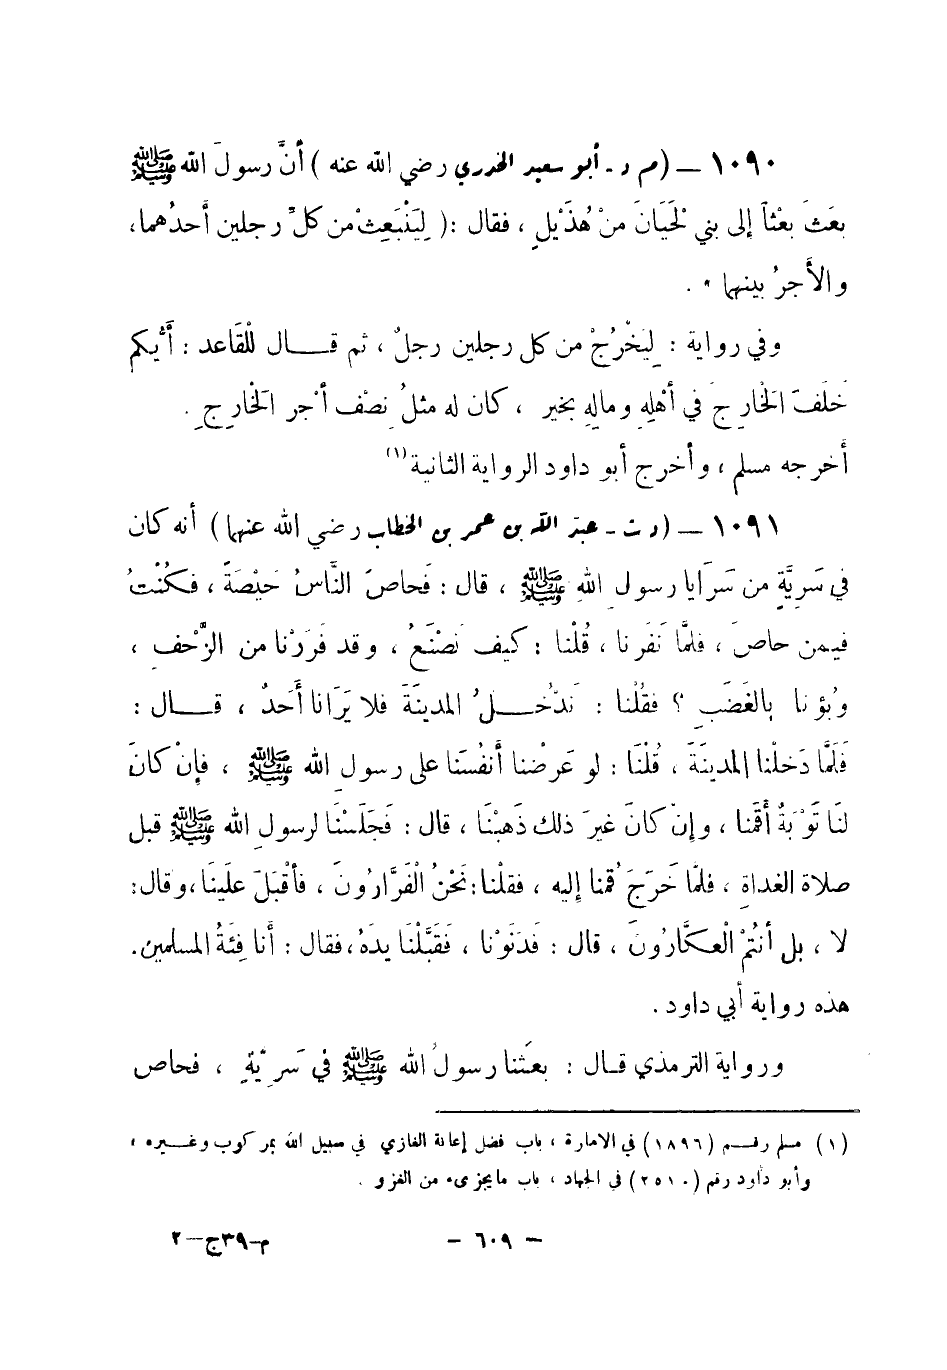 ١٠٩٠ — (م د - أبو سعيد الخدري رضي الله عنه) أنَّ رسولَ الله ﷺ
بعَثَ بعْثاً إلى بني لَحْيَانَ منْ هُذَيْلٍ ، فقال :( لِيَنْبَعِثْ من كلِّ رجلين أحدُهما،
والأَجرُ بينهما » .
وفي رواية : لِيَخْرُجْ من كل رجلين رجلٌ ، ثم قــال للْقَاعد : أَيُّكم
خَلَفَ الخَارِجَ في أهْلِهِ ومالِهِ بخير ، كان له مثلُ نِصْف أجر الخَارِجِ .
أخرجه مسلم ، وأخرج أبو داود الرواية الثانية(١)
١٠٩١ — (د ت - عبد الله بن عمر بن الخطاب رضي الله عنهما) أنه كان
في سَرِيَّةٍ من سَرَايا رسولِ اللهِ ﷺ ، قال : فَحاصَ النَّاسُ حَيْصَةً ، فكُنْتُ
فيمن حاصَ ، فلمَّا نَفَرنا ، قُلْنا : كيف نَصْنَعُ ، وقد فَرَرْنا من الزَّحْفِ ،
وبُؤنا بالغَضَبِ ؟ فقُلْنا : نَدْخُــلُ المدينَةَ فلا يَرَانا أَحدٌ ، قــال :
فَلَمَّا دَخلْنا المدينَةَ ، قُلْنَا : لو عَرضْنا أَنفُسَنا على رسولِ الله ﷺ ، فإنْ كانَ
لنَا تَوْبَةٌ أَقَمْنا ، وإنْ كانَ غيرَ ذلك ذَهبْنَا ، قال : فَجَلَسْنَا لرسولِ الله ﷺ قبل
صلاة الغداةِ ، فلمَّا خَرَجَ قُمنا إليه ، فقلْنا: نَحْنُ الْفَرَّارُونَ ، فأقْبَلَ علَينَا، وقال:
لا ، بل أنتُمْ الْعكَّارُونَ ، قال : فَدنَوْنا ، فَقَبَّلْنَا يدَهُ، فقال : أَنا فِئَةُ المسلمين.
هذه رواية أبي داود .
ورواية الترمذي قــال : بعَثنا رسولُ الله ﷺ في سَرِيَّةٍ ، فحاص
(١) مسلم رقــم (١٨٩٦) في الامارة ، باب فضل إعانة الغازي في سبيل الله بمركوب وغــيره ،
وأبو داود رقم (٢٥١٠) في الجهاد ، باب ما يجزىء من الغزو .
- ٦٠٩ -
م-٣٩ج-٢